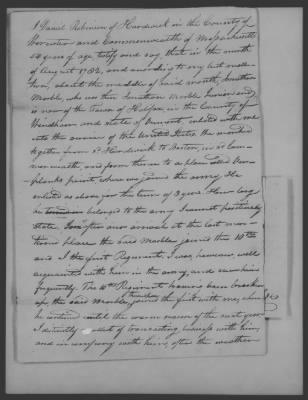 I Daniel Robinson of Hardwick in the County of
Worcester and Commonwealth of Massachusetts
years of age testify and say that in the month
of August 1782, and according to my best recollec-
tion, about the middle of said month, Jonathan
Marble, who was then Jonathan Marble Junior and
is now of the Town of Halifax, in the County of
Windham and State of Vermont, enlisted with me
into the service of the United States. We marched
together from sd Hardwick to Boston, in sd Com-
monwealth, and from thence to a place called Ver-
planks point, where we joined the army. He
enlisted as above for the term of 3 years. How long
he belonged to the army I cannot positively
state. Soon after our arrival at the last men-
tioned place the said Marble joined the 10th
and I the first Regiment. I was, however, well
acquainted with him in the army, and saw him
frequently. The 10th Regiment having been broken
up, the said Marble joined the first with me, where
he continued until the warm season of the next year.
I distinctly recollect of transacting business with him,
and in company with him, after the weather